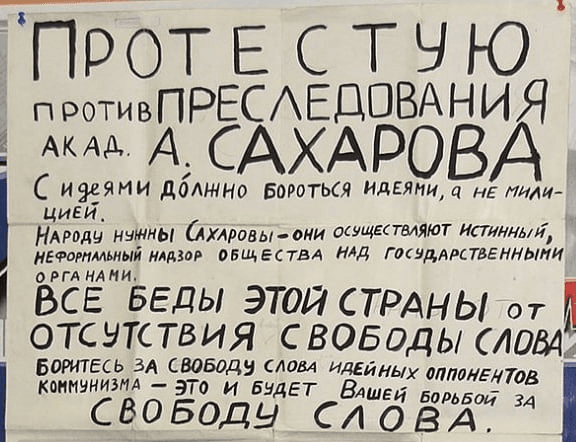 ПРОТЕСТУЮ
ПРОТИВ ПРЕСЛЕДОВАНИЯ
АКАД. А. САХАРОВА
С идеями дОлнно бороться идеями, а не мили-
цией.
Народу нунны Сахаровы – они осуществляют истинный,
неформальный надзор общества над государственными
органами.
ВСЕ БЕДЫ ЭТОЙ СТРАНЫ ОТ
ОТСУТСТВИЯ СВОБОДЫ СЛОВА
БОРИТЕСЬ ЗА СВОБОДУ СЛОВА ИДЕЙНЫХ ОППОНЕНТОВ
КОММУНИЗМА – ЭТО И БУДЕТ ВАШЕЙ БОРЬБОЙ ЗА
СВОБОДУ СЛОВА.